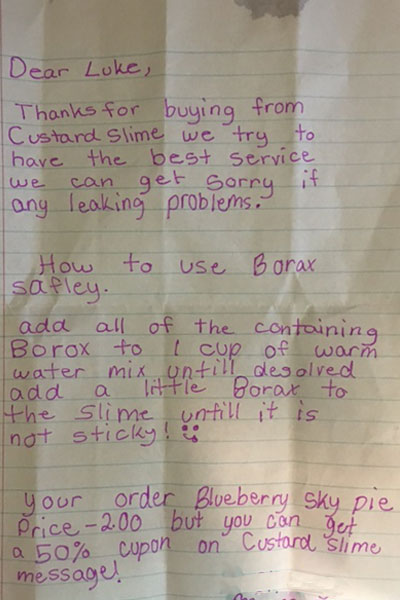 Dear Luke,
Thanks for buying from
Custard Slime we try to
have the best service
we can get sorry if
any leaking problems.
How to use Borax
safley.
add all of the containing
Borox to 1 cup of warm
water mix untill desolved
add a little Borax to
the slime untill it is
not sticky!
your order Blueberry sky pie
Price - 2.00 but you can get
a 50% cupon on Custard slime
message!